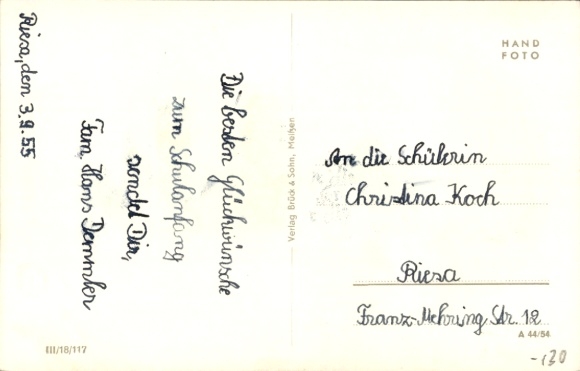 Riesa, dem 3.9.55
Die besten Glückwünsche
zum Schulanfang
sendet Dir,
Fam. Hans Demmler
III/18/117
Verlag Brück & Sohn, Meißen
HAND
FOTO
An die Schülerin
Christina Koch
Riesa
Franz-Mehring Str. 12
A 44/54
-,30